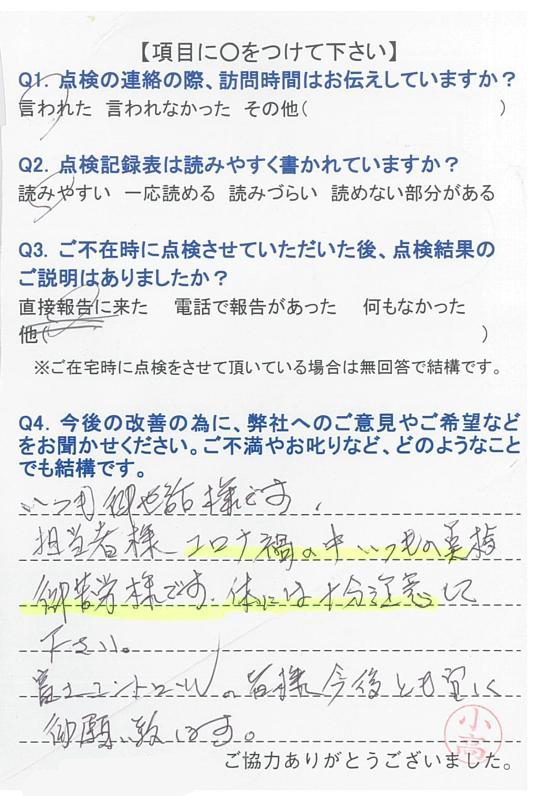 【項目に〇をつけて下さい】
Q1. 点検の連絡の際、訪問時間はお伝えしていますか？
言われた 言われなかった その他( )
Q2. 点検記録表は読みやすく書かれていますか？
読みやすい 一応読める 読みづらい 読めない部分がある
Q3. ご不在時に点検させていただいた後、点検結果の
ご説明はありましたか？
直接報告に来た 電話で報告があった 何もなかった
他( )
※ご在宅時に点検をさせて頂いている場合は無回答で結構です。
Q4. 今後の改善の為に、弊社へのご意見やご希望など
をお聞かせください。ご不満やお叱りなど、どのようなこと
でも結構です。
いつも御世話様です、
担当者様 コロナ禍の中 いつもの
御苦労様です。体には十分注意して
下さい。
富士コントロールの皆様今後とも宜しく
御願い致します。
小高
ご協力ありがとうございました。